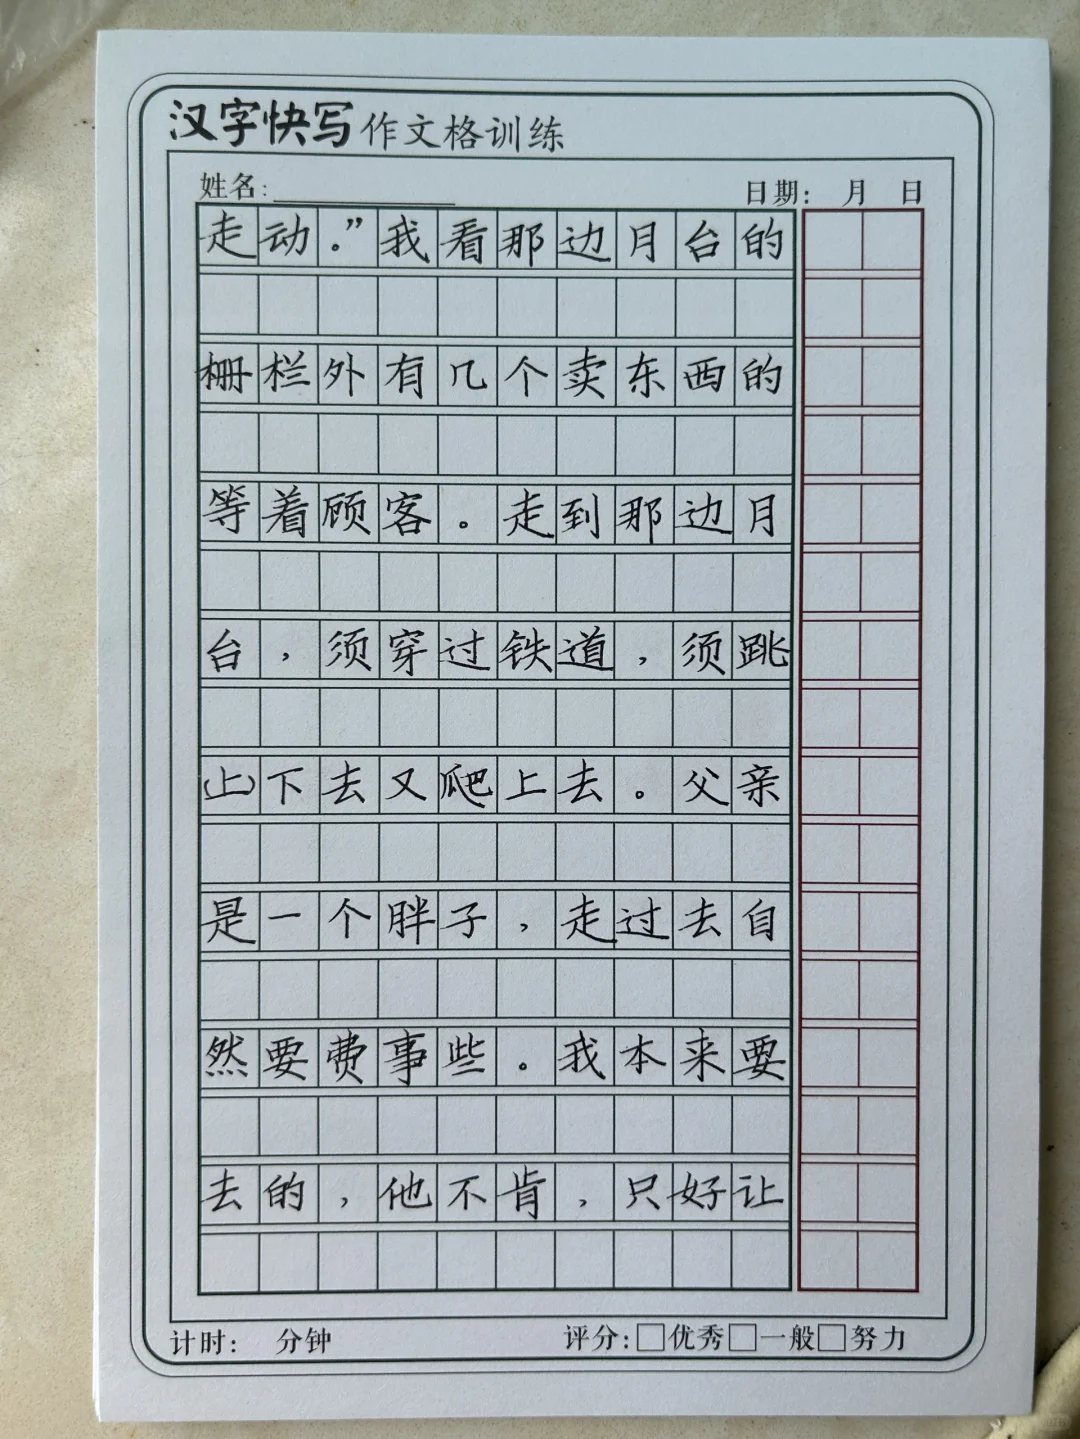 汉字快写作文格训练
姓名: 日期: 月 日
走动。”我看那边月台的
栅栏外有几个卖东西的
等着顾客。走到那边月
台,须穿过铁道,须跳
(上)下去又爬上去。父亲
是一个胖子,走过去自
然要费事些。我本来要
去的,他不肯,只好让
计时: 分钟 评分:□优秀□一般□努力